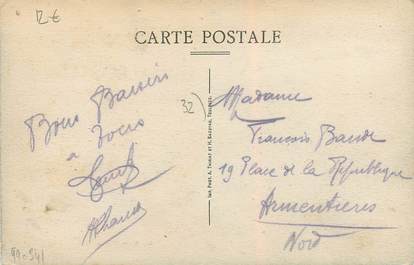 12 €
CARTE POSTALE
Bons Baisers
à tous
32)
Madame
François Baude
19 Place de la République
Armentières
Nord